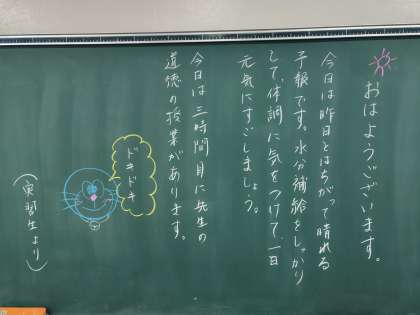 おはようございます。
今日は昨日とはちがって晴れる
予報です。水分補給をしっかり
して、体調に気をつけて、一日
元気にすごしましょう。
今日は三時間目に先生の
道徳の授業があります。
ドキドキ
(実習生より)